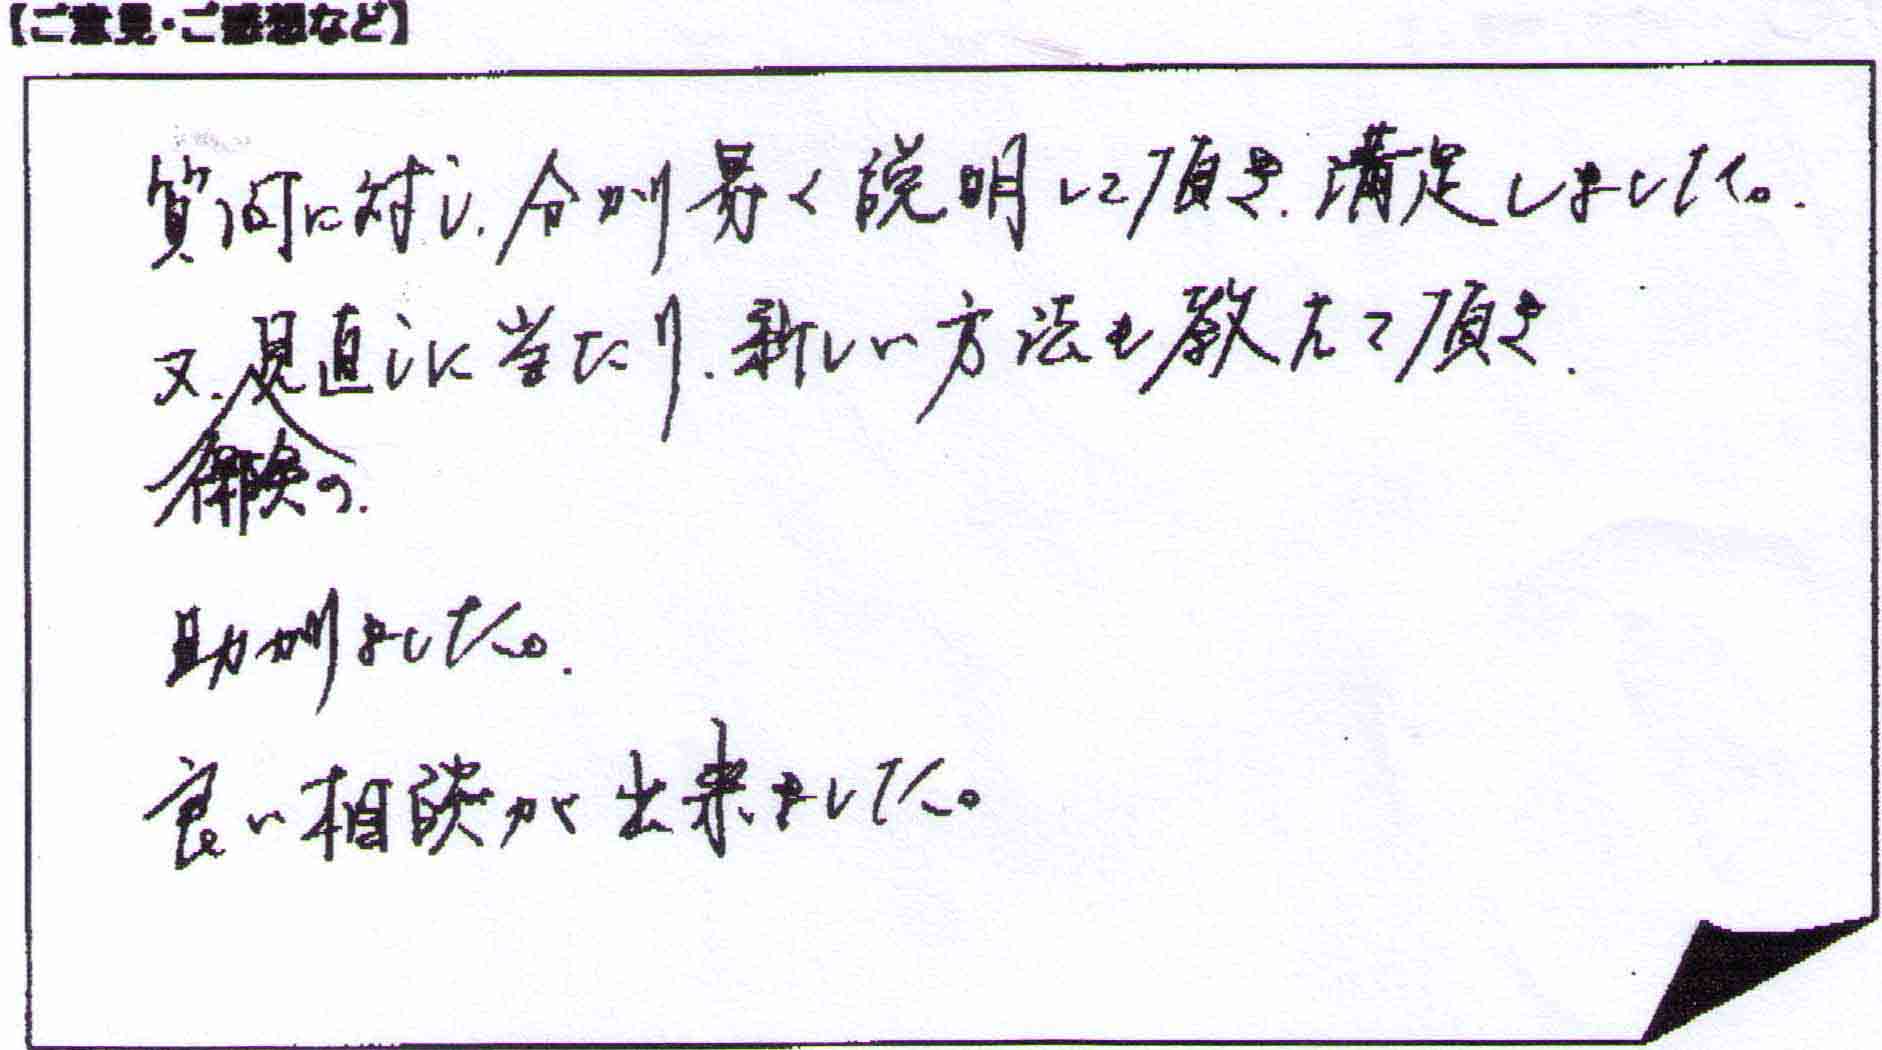 【ご意見・ご感想など】
質問に対し、分かり易く説明して頂き、満足しました。
又、見直しに当たり、新しい方法も教えて頂き、
保険の
助かりました。
良い相談が出来ました。